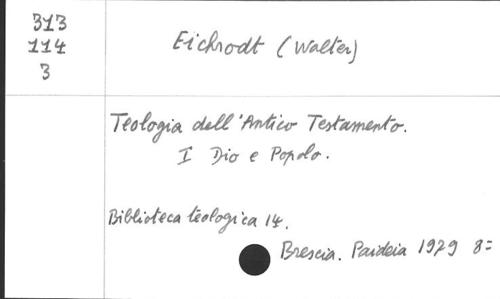 313
114
3
Eichrodt (Walter)
Teologia dell'Antico Testamento.
I Dio e Popolo.
Biblioteca teologica 14.
Brescia. Paideia 1979 8=